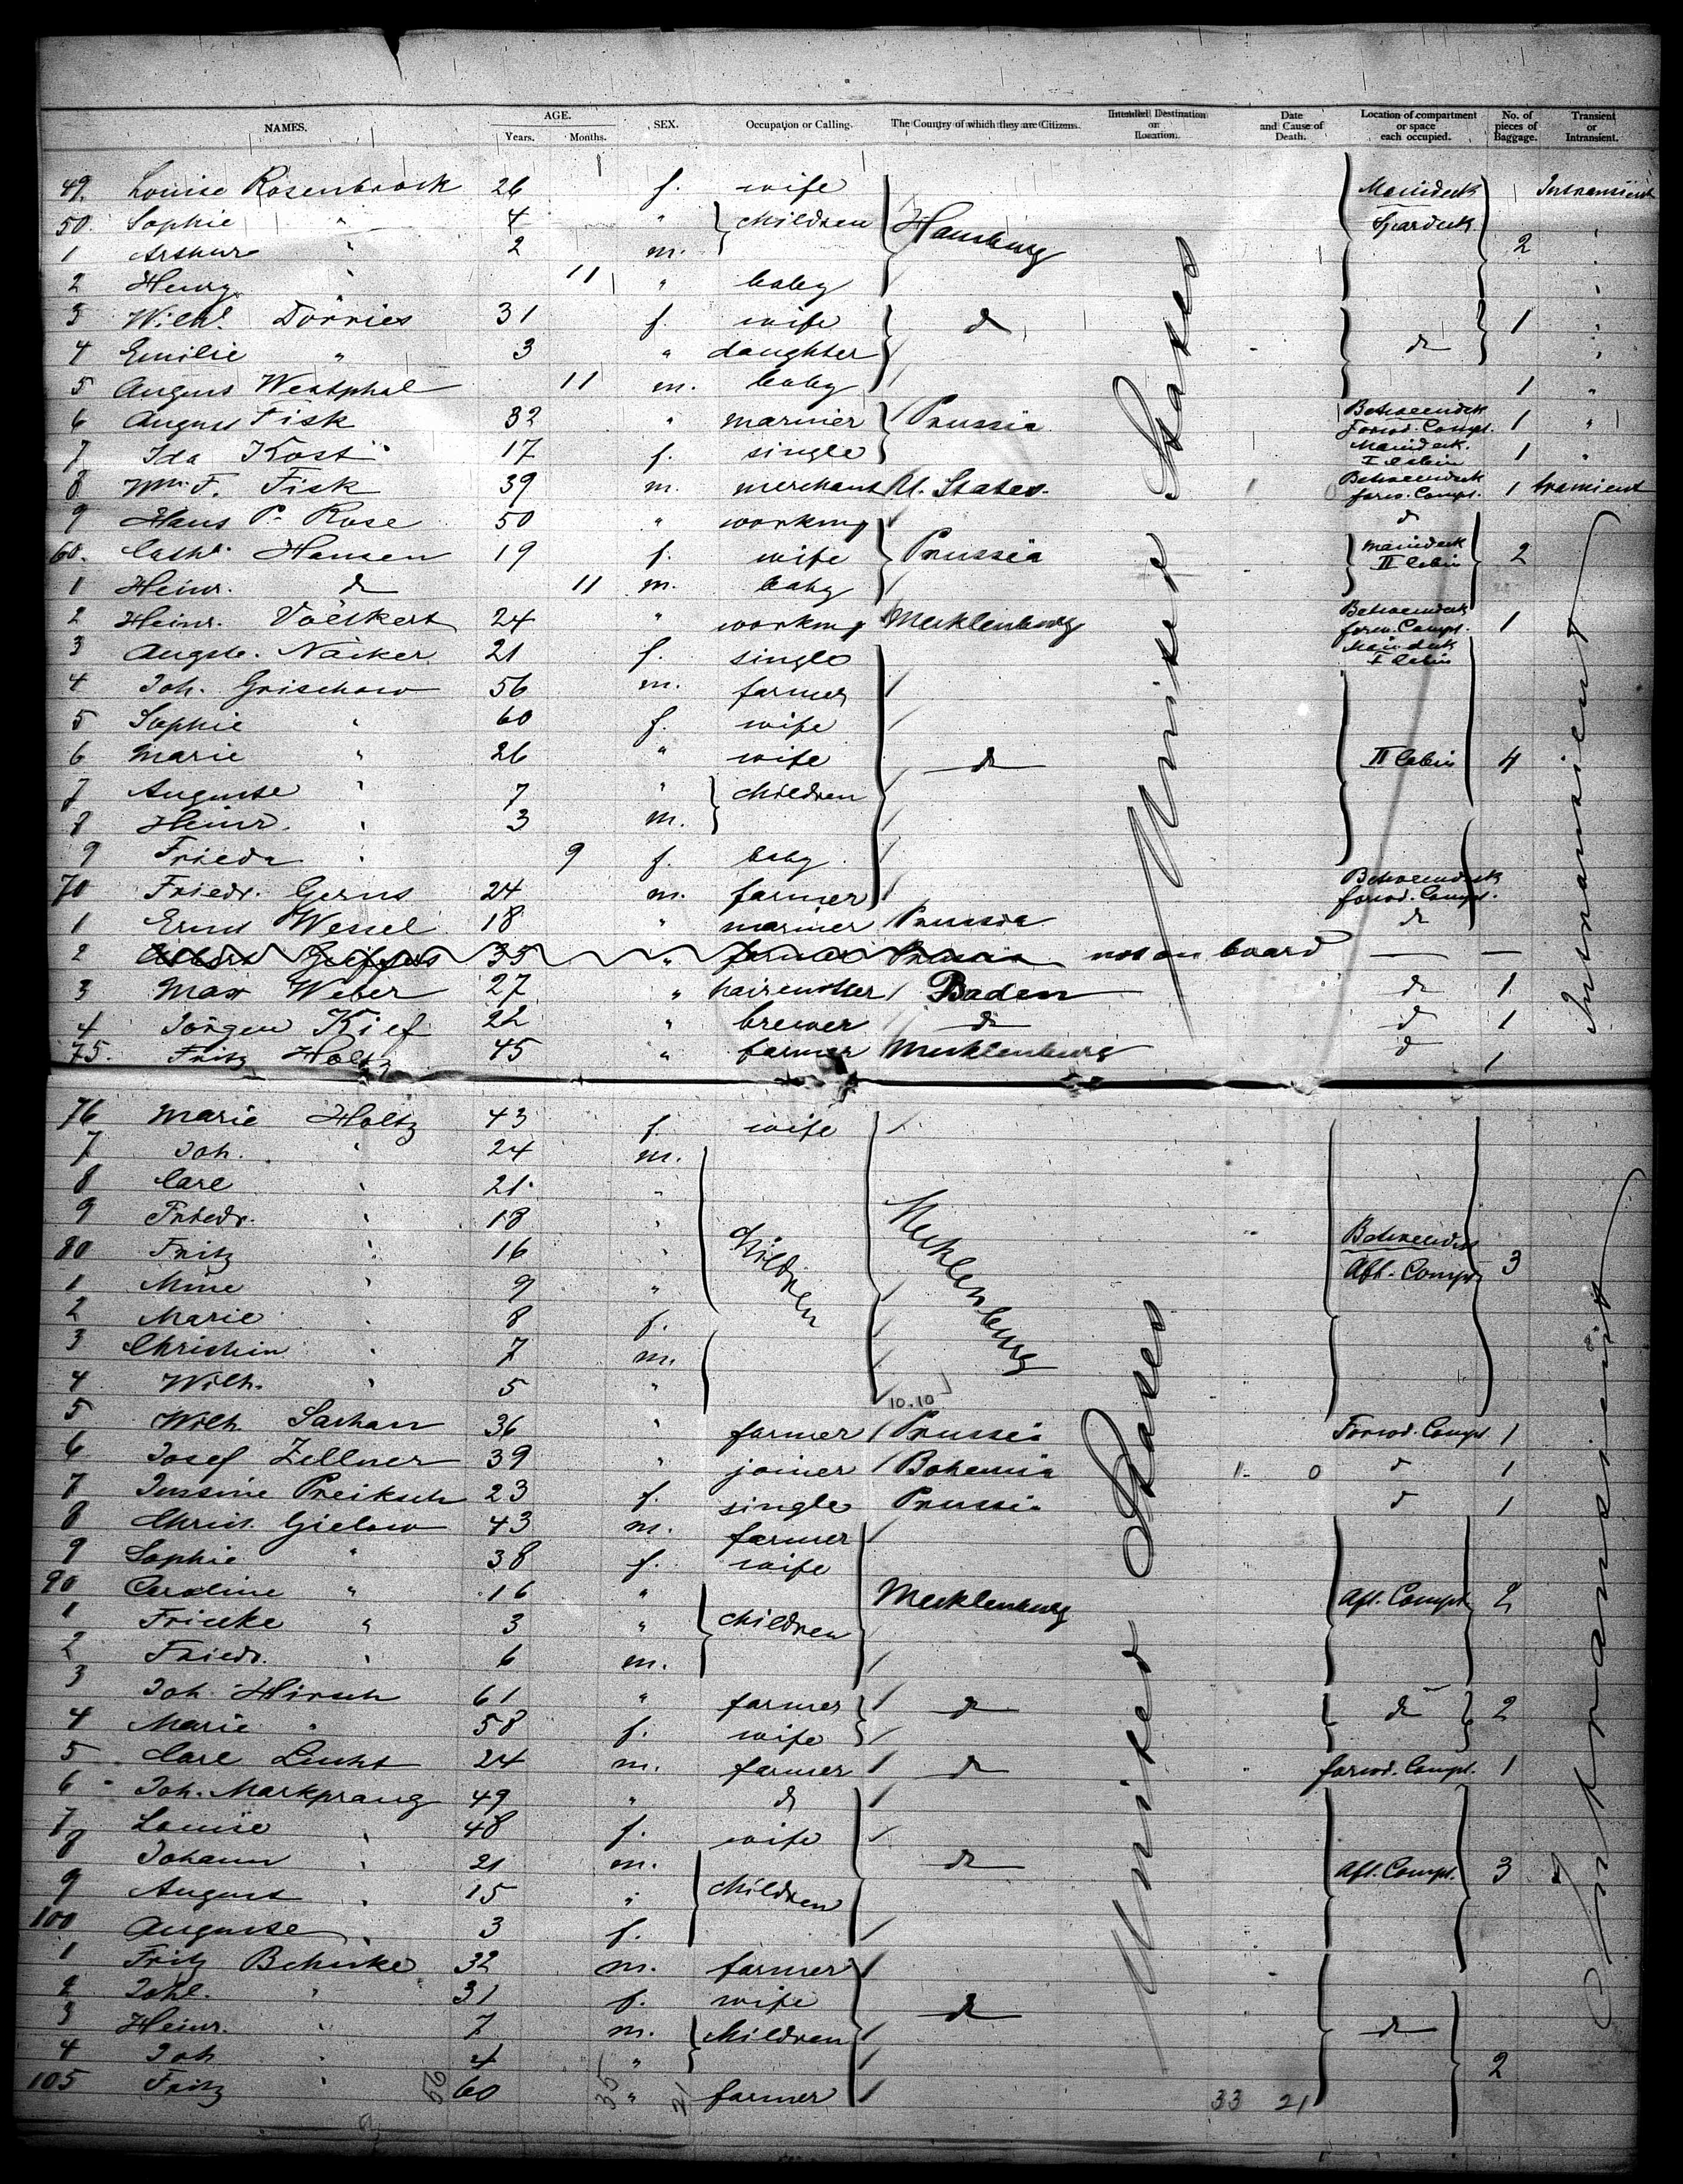 NAMES. AGE. Years. Months. SEX. Occupation or Calling. The Country of which they are Citizens. Intended Destination or Location. Date and Cause of Death. Location of compartment or space each occupied. No. of pieces of Baggage. Transient or Intransient.
49. Louise Rosenbrock 26 f. wife Maindeck Intransient
50. Sophie " 4 " children Hamburg Spardeck "
1 Arthur " 2 m. 2 "
2 Henry " 11 " baby "
3 Wilhl. Dörries 31 f. wife do 1 "
4 Emilie " 3 " daughter do "
5 August Westphal 11 m. baby 1 "
6 August Fisk 32 " mariner Prussia Betweendeck Forwd. Compt. 1 "
7 Ida Kost 17 f. single Maindeck. I Cabin 1 "
8 Wm. F. Fisk 39 m. merchant U. States. Betweendeck forw. Compt. 1 transient
9 Hans P. Rose 50 " working do
60. Cathr. Hansen 19 f. wife Prussia Maindeck II Cabin 2
1 Heinr. do 11 m. baby
2 Heinr. Völkert 24 " working Mecklenburg Betweendeck forw. Compt. 1
3 Augste. Näcker 21 f. single Maindeck I Cabin
4 Joh. Grischow 56 m. farmer
5 Sophie " 60 f. wife
6 Marie " 26 " wife do II Cabin 4
7 Auguste " 7 " children
8 Heinr. " 3 m.
9 Frieda " 9 f. baby
70 Friedr. Gerns 24 m. farmer Betweendeck forwd. Compt.
1 Ernst Wessel 18 " mariner Prussia do
2 35 " farmer Prussia not on board — —
3 Max Weber 27 " Baden do 1
4 Jörgen Kief 22 " brewer do do 1
75. Fritz Holtz 45 " farmer Mecklenburg do 1
United States
Intransient
76 Marie Holtz 43 f. wife
7 Joh. " 24 m.
8 Carl " 21 "
9 Friedr. " 18 " children Mecklenburg
80 Fritz " 16 " Betweendeck Aft. Compt 3
1 Mine " 9 "
2 Marie " 8 f.
3 Christian " 7 m.
4 Wilh. " 5 " 10.10
5 Wilh. 36 " farmer Prussia Forwd. Compt 1
6 Josef Zellner 39 " joiner Bohemia 1 0 do 1
7 Preiksch 23 f. single Prussia do 1
8 Christ. Gielow 43 m. farmer
9 Sophie " 38 f. wife
90 Caroline " 16 " Mecklenburg Aft. Compt 2
1 Fricke " 3 " children
2 Friedr. " 6 m.
3 Joh. Hirsch 61 " farmer do do 2
4 Marie " 58 f. wife
5 Carl Lucht 24 m. farmer do forwd. Compt. 1
6 Joh. Markprang 49 " do
7 Louise " 48 f. wife
8 Johann " 21 m. do Aft. Compt. 3
9 August " 15 " children
100 Auguste " 3 f.
1 Fritz Behnke 32 m. farmer
2 " 31 f. wife do
3 Heinr. " 7 m. children do
4 Joh " 4 " 2
105 Fritz " 60 " farmer 33 21
United States
Intransient